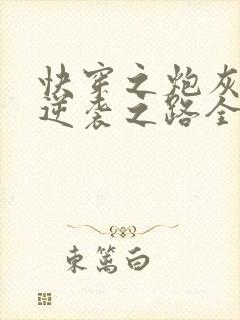 快穿之炮灰
逆袭之路全
东篱白